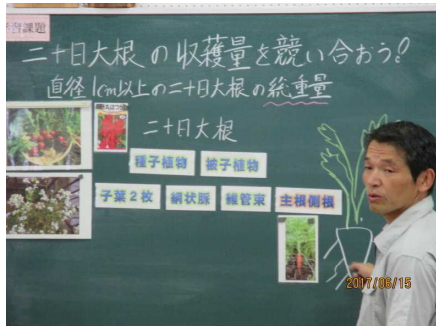 学習課題
二十日大根の収穫量を競い合おう!
直径1cm以上の二十日大根の総重量
二十日大根
種子植物
被子植物
子葉2枚
網状脈
維管束
主根側根
2017/06/15